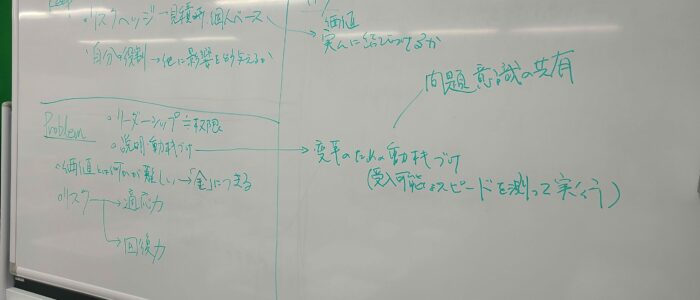 ・リスクヘッジ→見積所 個人ベース
価値
実ムに結びつけるか
・自分の役割→他に影響を与えるか
問題意識の共有
Problem
・リーダーシップ≒权限
・説明・動機づけ → 変革のための動機づけ
(受入可能なスピードを測って実行う)
・価値とは何かが難しい→「金につまる
・リスク→適応力
→回復力